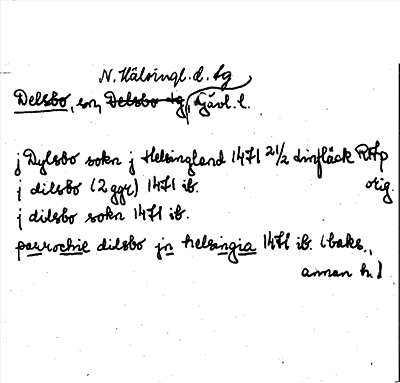 N. Hälsingl. d. tg
Delsbo, sn, Delsbo tg, Gävl. l.
j Dylsbo sokn j Helsingland 1471 21/2 Linfläck RAp
j dilsbo (2 ggr) 1471 ib. orig.
j dilsbo sokn 1471 ib.
parrochie dilsbo jn helsingia 1471 ib. (baks.,
annan h.)